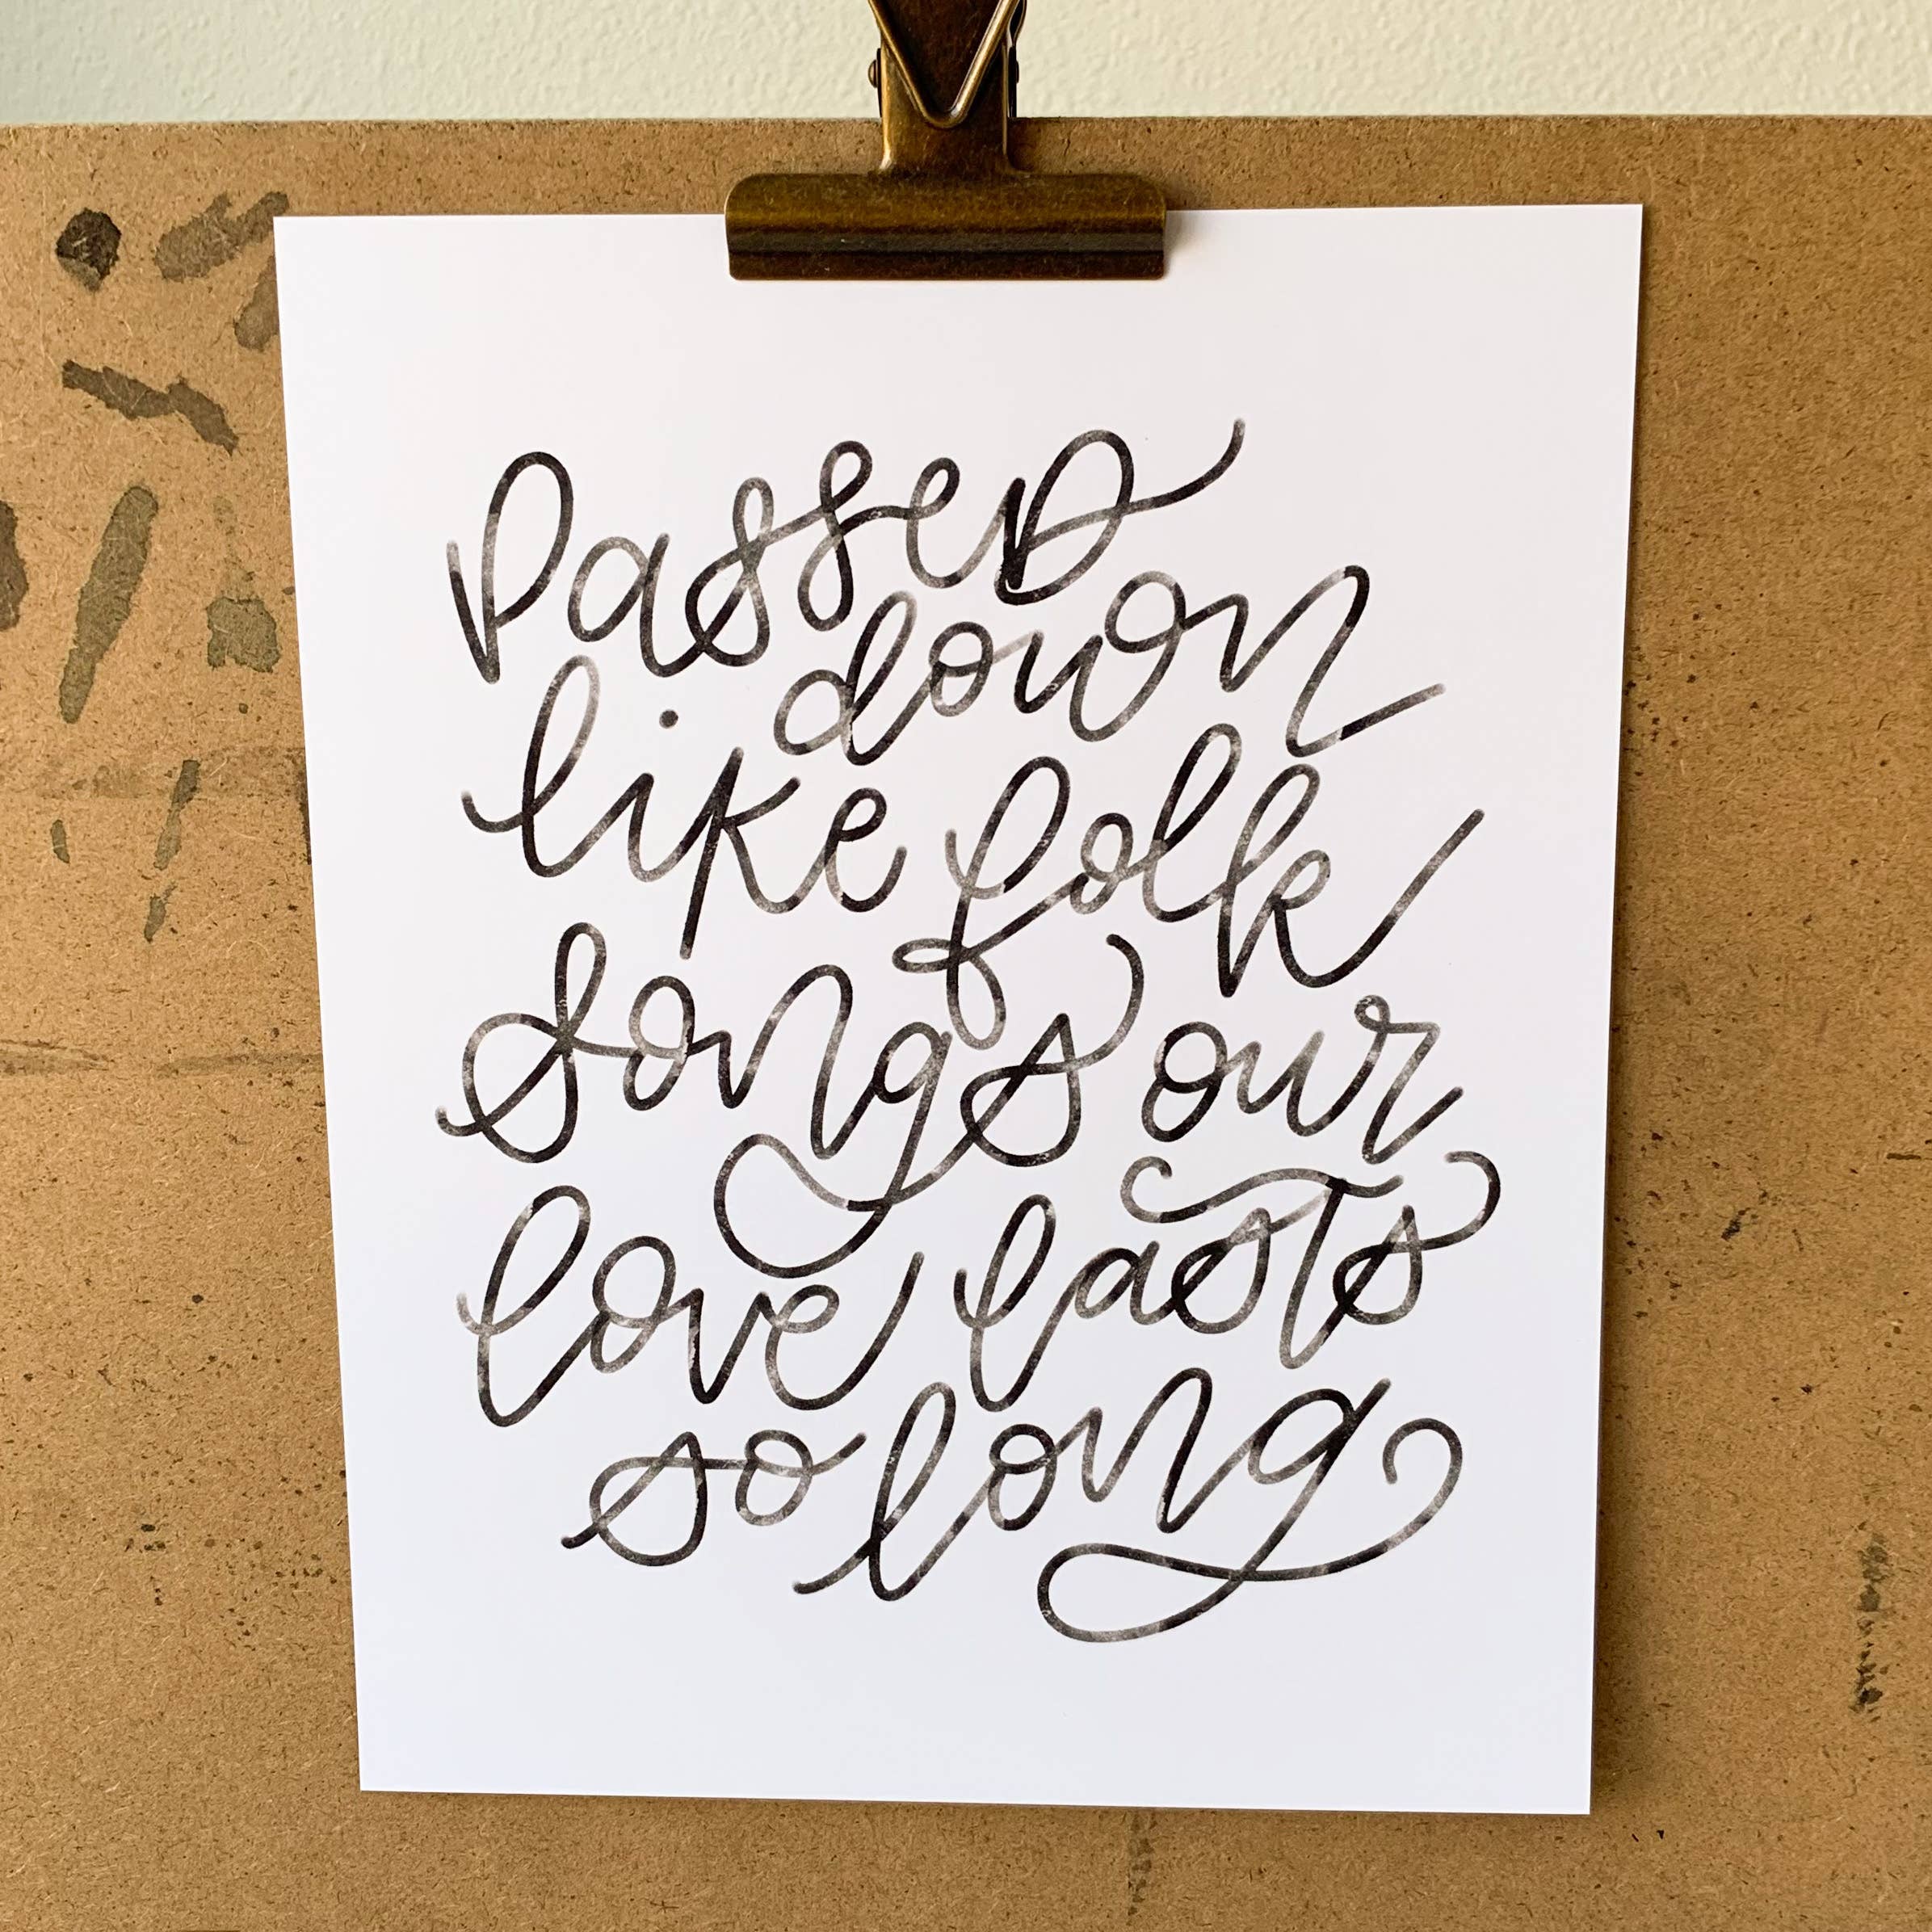 passed
down
like folk
songs our
love lasts
so long